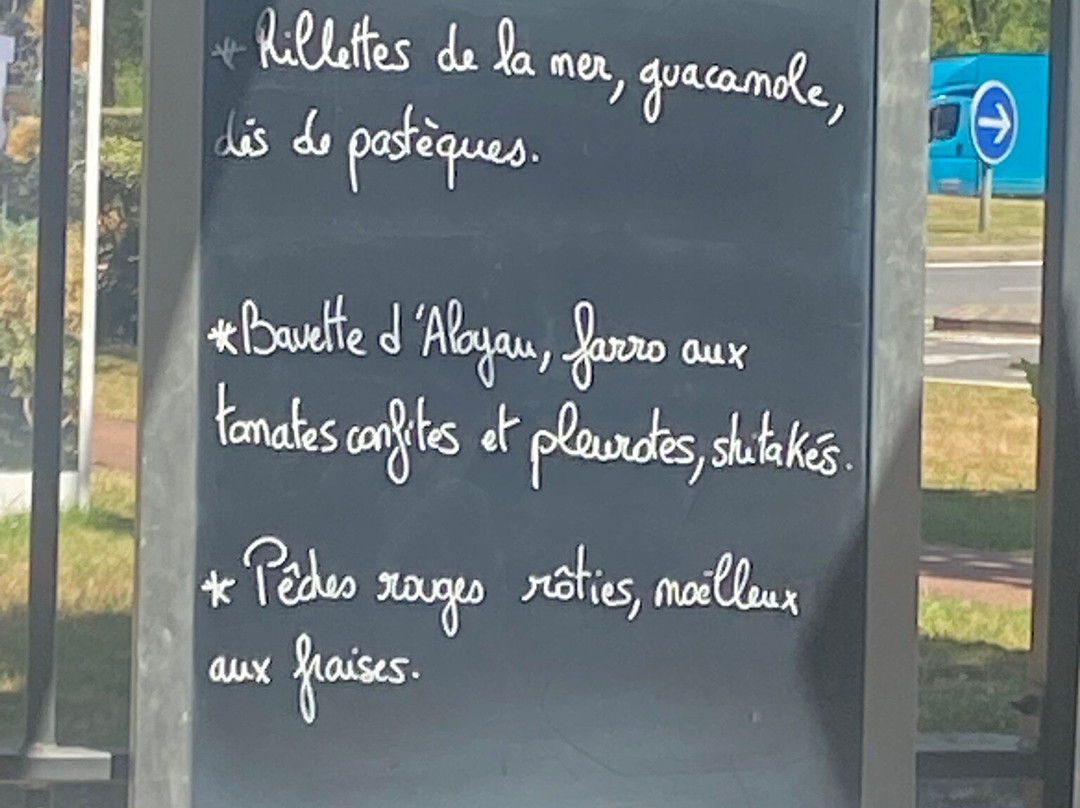 * Rillettes de la mer, guacamole,
dés de pastèques.
*Bavette d'Aloyau, farro aux
tomates confites et pleurotes, shitakés.
* Pêches rouges rôties, moëlleux
aux fraises.